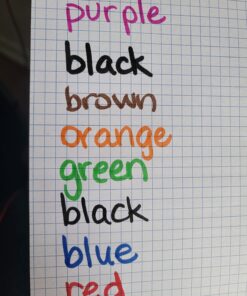 purple
black
brown
orange
green
black
blue
red